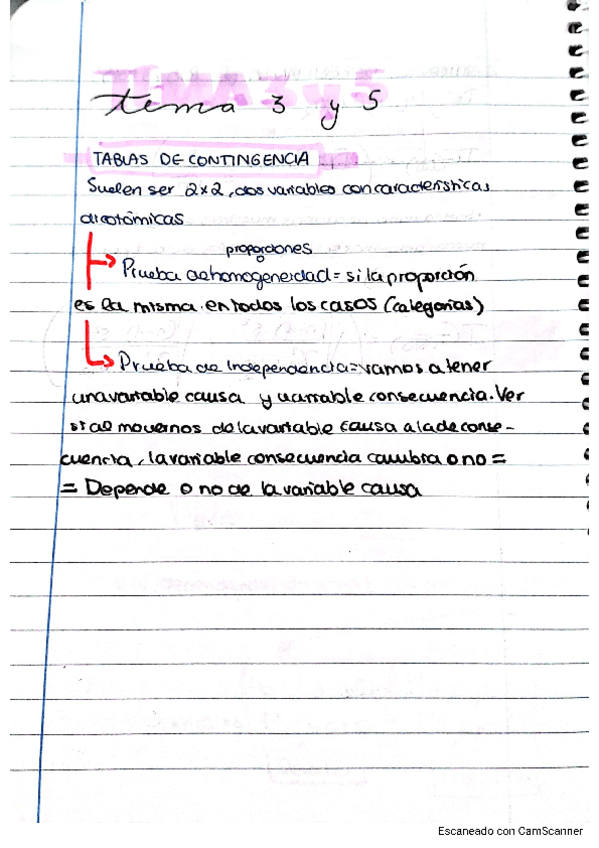 tema 3 y 5
TABLAS DE CONTINGENCIA
Suelen ser 2x2, dos variables con características
dicotómicas
proporciones
Prueba de homogeneidad = si la proporción
es la misma en todos los casos (categorías)
Prueba de Independencia = vamos a tener
una variable causa y variable consecuencia. Ver
si al movernos de la variable causa a la de conse-
cuencia, la variable consecuencia cambia o no =
= Depende o no de la variable causa
Escaneado con CamScanner